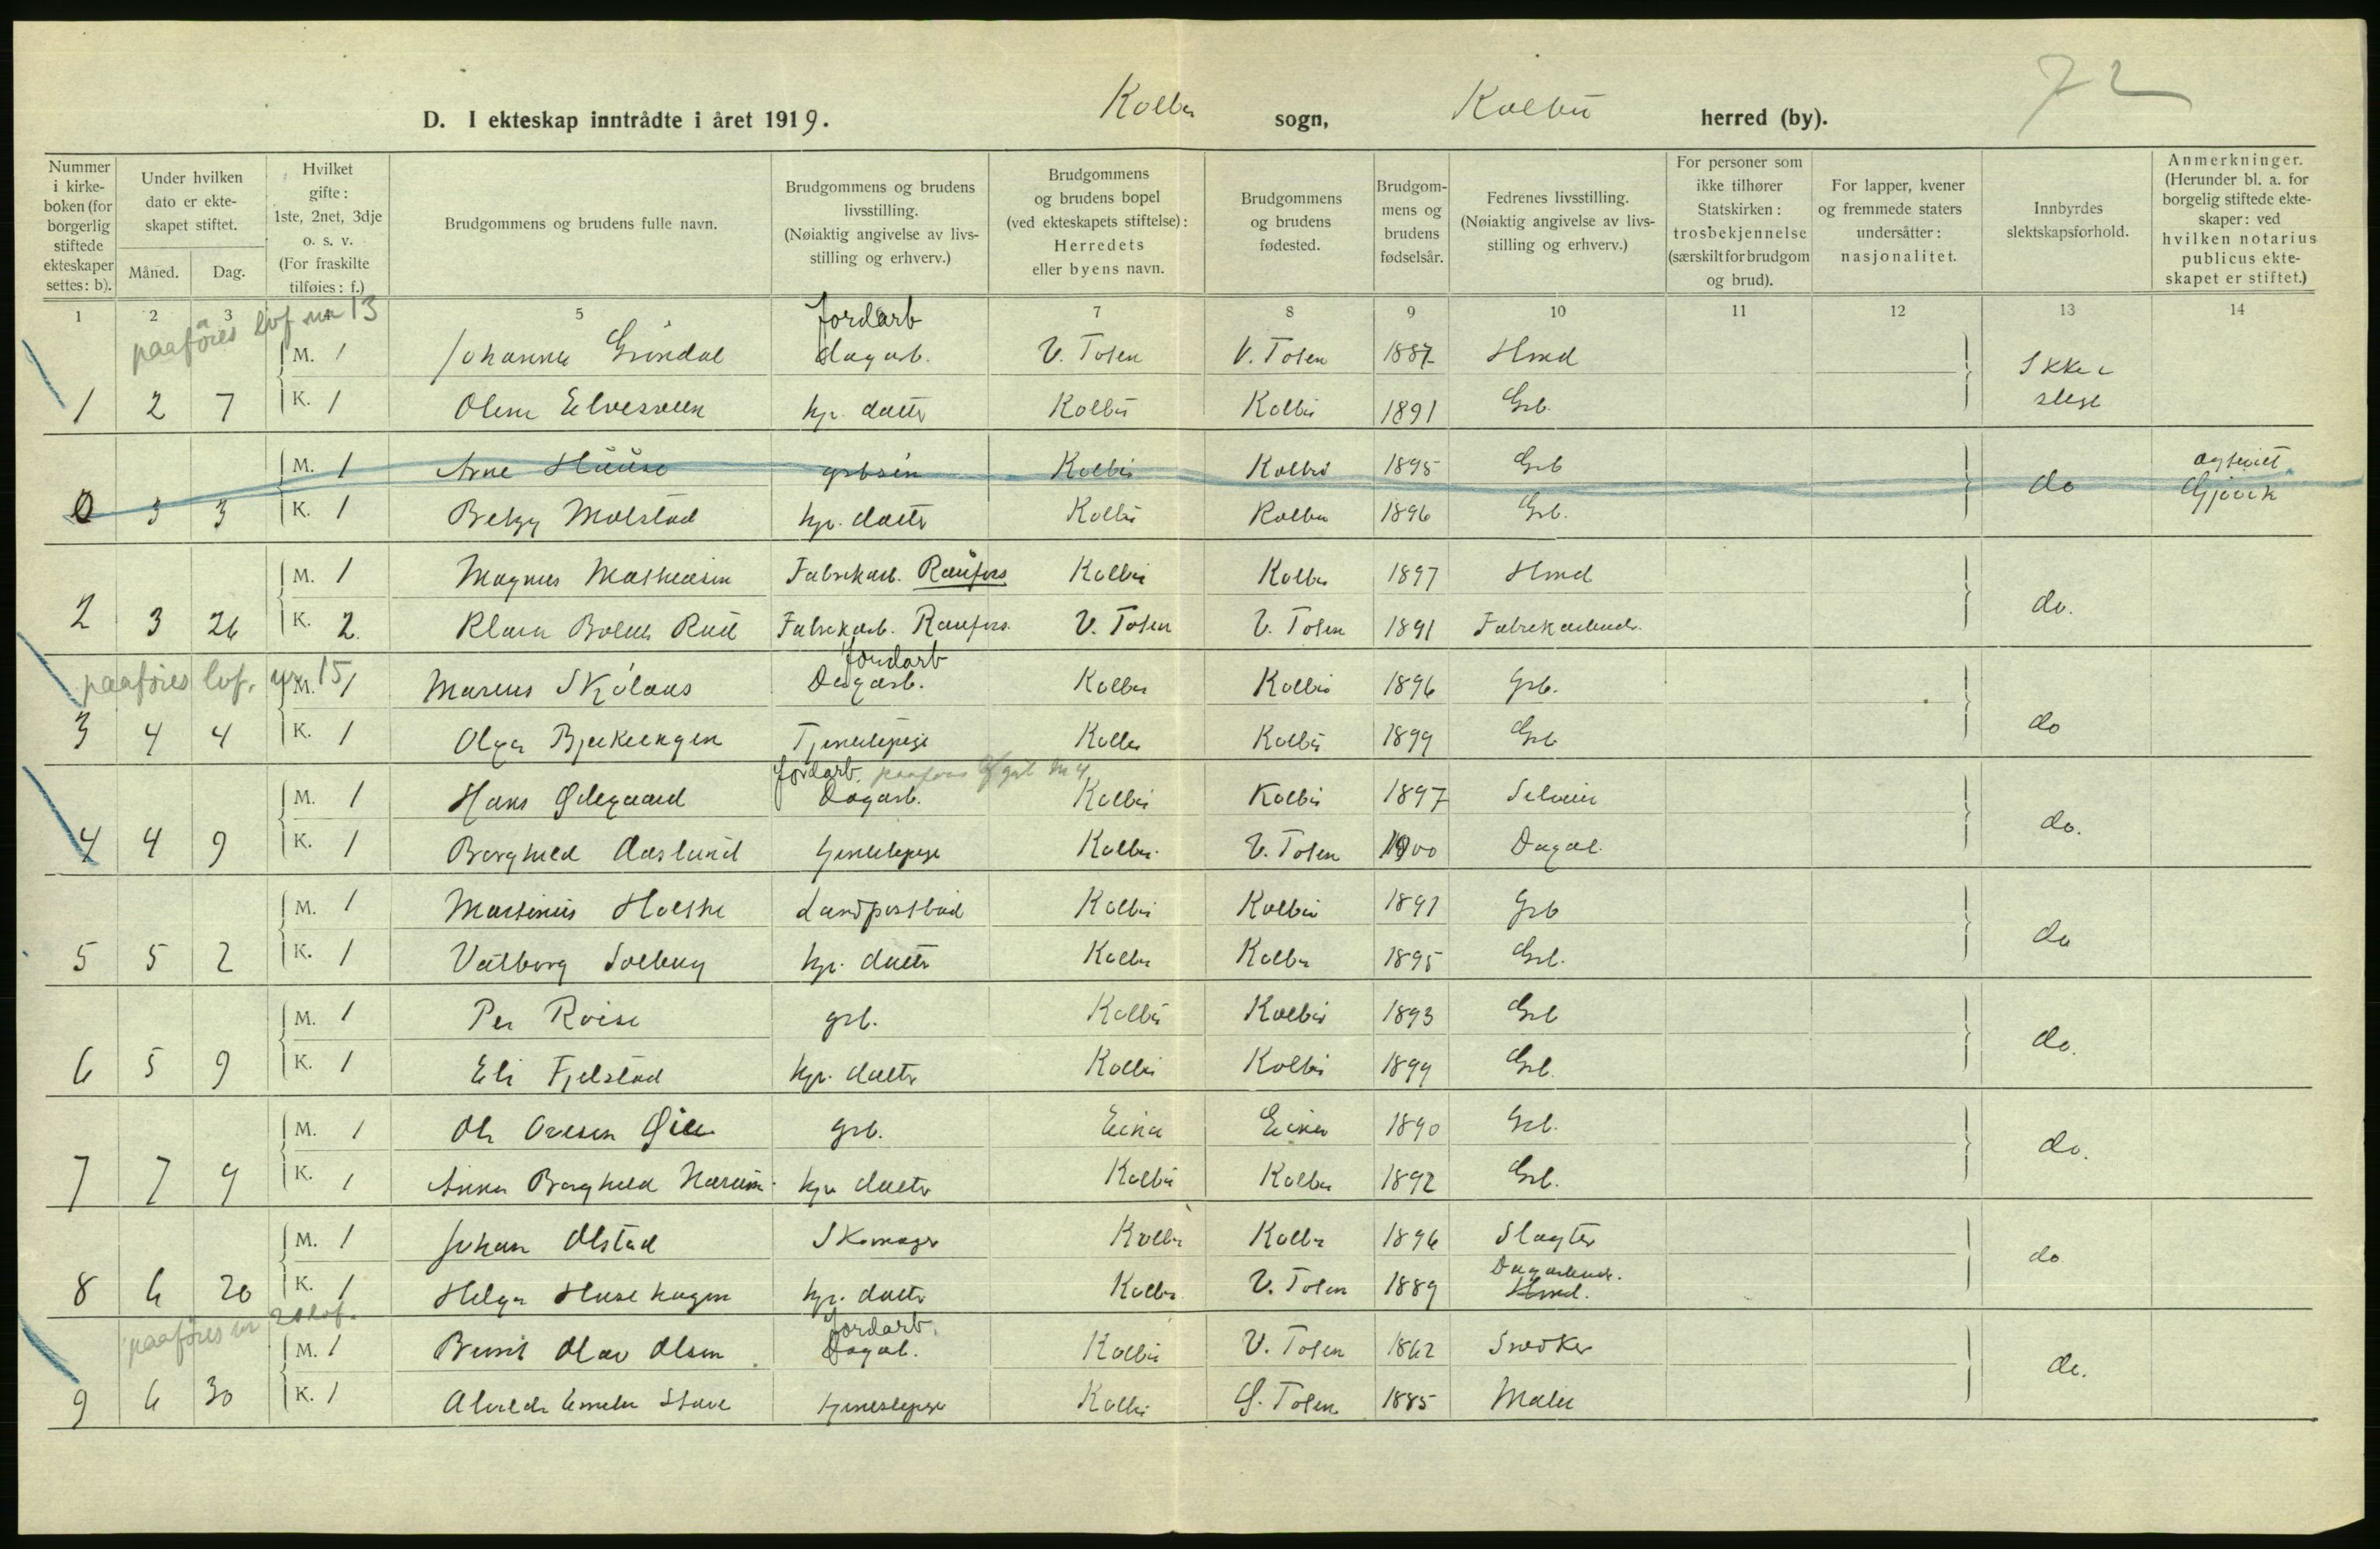 72
D. I ekteskap inntrådte i året 1919. Kolbu sogn, Kolbu herred (by).
Nummer i kirkeboken (for borgerlig stiftede ekteskaper settes: b).
Under hvilken dato er ekteskapet stiftet.
Måned. Dag.
Hvilket gifte: 1ste, 2net, 3dje o. s. v. (For fraskilte tilføies: f.)
Brudgommens og brudens fulle navn.
Brudgommens og brudens livsstilling. (Nøiaktig angivelse av livsstilling og erhverv.)
Brudgommens og brudens bopel (ved ekteskapets stiftelse): Herredets eller byens navn.
Brudgommens og brudens fødested.
Brudgommens og brudens fødselsår.
Fedrenes livsstilling. (Nøiaktig angivelse av livsstilling og erhverv.)
For personer som ikke tilhører Statskirken: trosbekjennelse (særskilt for brudgom og brud).
For lapper, kvener og fremmede staters undersåtter: nasjonalitet.
Innbyrdes slektskapsforhold.
Anmerkninger. (Herunder bl. a. for borgelig stiftede ekteskaper: ved hvilken notarius publicus ekteskapet er stiftet.)
1 2 3 5 7 8 9 10 11 12 13 14
paaføres lvf nr 13
Jordarb
M. 1 Johannes Grøndal dagarb. V. Toten V. Toten 1887 Hmd Ikke
1 2 7 K. 1 Oline Elvesveen hjv. datter Kolbu Kolbu 1891 Grb. slegt
M. 1 Arne Huuse grbsøn Kolbu Kolbu 1895 Grb
0 3 3 K. 1 Betzy Molstad hjv. datter Kolbu Kolbu 1896 Grb. do Gjøvik
M. 1 Magnus Mathiasen Fabrikarb. Raufoss Kolbu Kolbu 1897 Hmd
2 3 26 K. 2. Klara Bolette Rud Fabrikarb. Raufoss V. Toten V. Toten 1891 Fabrikarbeid. do.
paaføres lvf. nr 15
Jordarb
M. 1 Marius Skjølaas Dagarb. Kolbu Kolbu 1896 Grb.
3 4 4 K. 1 Olga Bjerkeengen Tjenestepige Kolbu Kolbu 1899 Grb do
Jordarb.
M. 1 Hans Ødegaard Dagarb. Kolbu Kolbu 1897 Selveier
4 4 9 K. 1 Borghild Aaslund tjenestepige Kolbu V. Toten 1900 Dagarb. do.
M. 1 Martinius Holthe Landpostbud Kolbu Kolbu 1891 Grb
5 5 2 K. 1 Valborg Solberg hjv. datter Kolbu Kolbu 1895 Grb. do
M. 1 Per Roise grb. Kolbu Kolbu 1893 Grb
6 5 9 K. 1 Eli Fjelstad hjv. datter Kolbu Kolbu 1899 Grb. do.
M. 1 Ole Olesen Eina Eina 1890 Grb. grb.
7 7 9 K. 1 Anna Borghild hjv datter Kolbu Kolbu 1892 Grb. do.
M. 1 Johan Olstad Skomager Kolbu Kolbu 1896 Slagter
Dagarbeid.
8 6 20 K. 1 Helga Husehagen hjv. datter Kolbu V. Toten 1889 Hmd. do
paaføres nr 20 lvf.
Jordarb.
M. 1 Bernt Olav Olsen Dagarb. Kolbu V. Toten 1862 Snedker
9 6 30 K. 1 Tjenestepige Kolbu Ø. Toten 1885 Maler do.